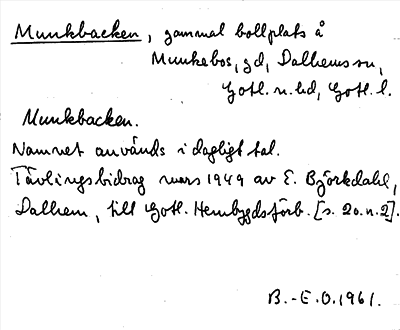 Munkbacken, gammal bollplats å
Munkebos, gd, Dalhems sn,
Gotl. n. hd, Gotl. l.
Munkbacken.
Namnet används i dagligt tal.
Tävlingsbidrag mars 1949 av E. Björkdahl,
Dalhem, till Gotl. Hembygdsförb. [s. 20. n. 2].
B.-E. O. 1961.